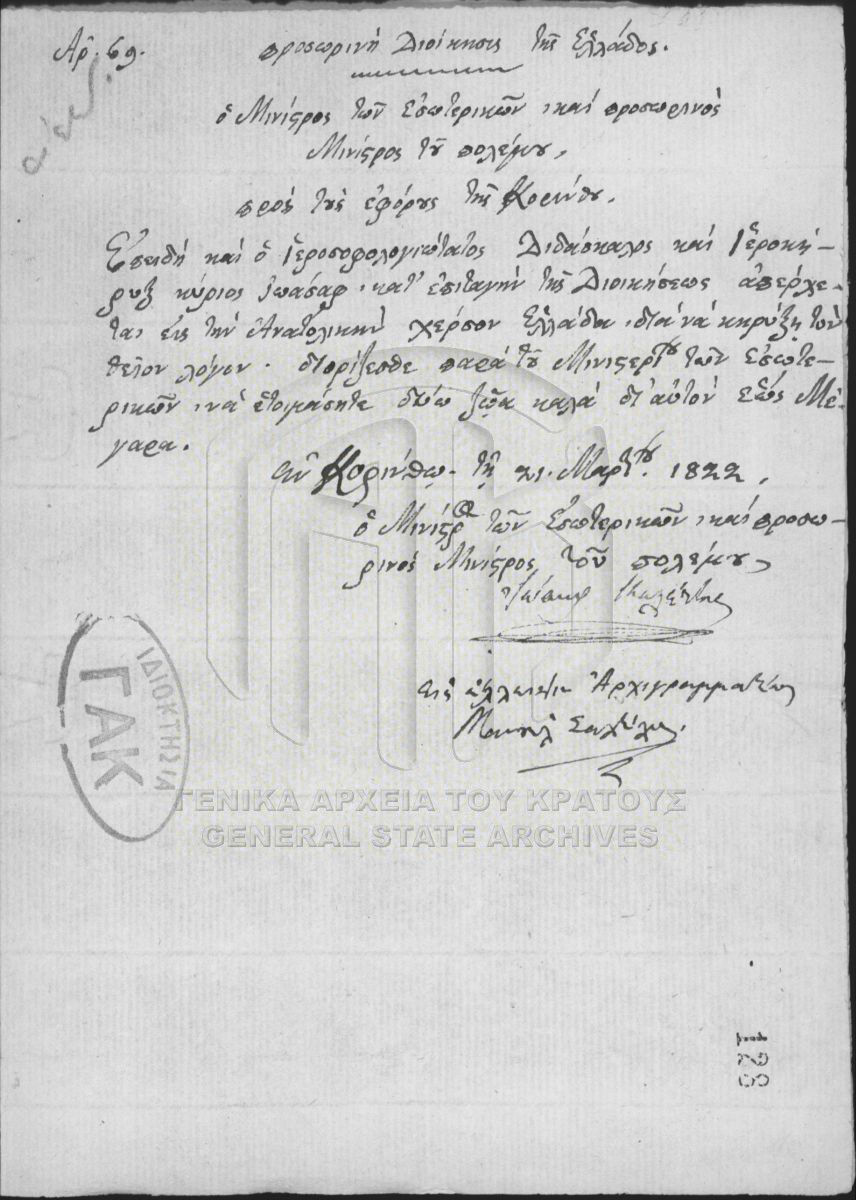 Αρ. 69.
προσωρινὴ Διοίκησις τῆς Ἑλλάδος.
ὁ Μινίςρος τῶν Ἐσωτερικῶν, καὶ προσωρινὸς
Μινίςρος τȣ͂ πολέμȣ,
πρὸς τȣ̀ς ἐφόρȣς τῆς Κορίνθȣ.
Ἐπειδὴ καὶ ὁ Ἱεροσοφολογιώτατος Διδάσκαλος καὶ Ἱεροκή-
ρυξ κύριος Ἰωάσαφ, κατ' ἐπιταγὴν τῆς Διοικήσεως ἀπέρχε-
ται εἰς τὴν Ἀνατολικὴν χέρσον Ἑλλάδα, διὰ νὰ κηρύξῃ τὸν
θεῖον λόγον. διορίζεσθε παρὰ τȣ͂ Μινιςερίȣ τῶν Ἐσωτε-
ρικῶν, νὰ ἑτοιμάσητε δύω ζῶα καλὰ δι' αὐτὸν ἕως Μέ-
γαρα.
ἐν Κορίνθῳ. τῇ 21. Μαρτίȣ. 1822,
ὁ Μινίςρος τῶν Ἐσωτερικῶν, καὶ προσω-
ρινὸς Μηνίςρος τοῦ πολέμȣ
Ἰωάννης Κωλέττης
εἰς ἔλλειψιν Ἀρχιγραμματέως
ΙΔΙΟΚΤΗΣΙΑ
ΓΑΚ
ΓΕΝΙΚΑ ΑΡΧΕΙΑ ΤΟΥ ΚΡΑΤΟΥΣ
GENERAL STATE ARCHIVES
128